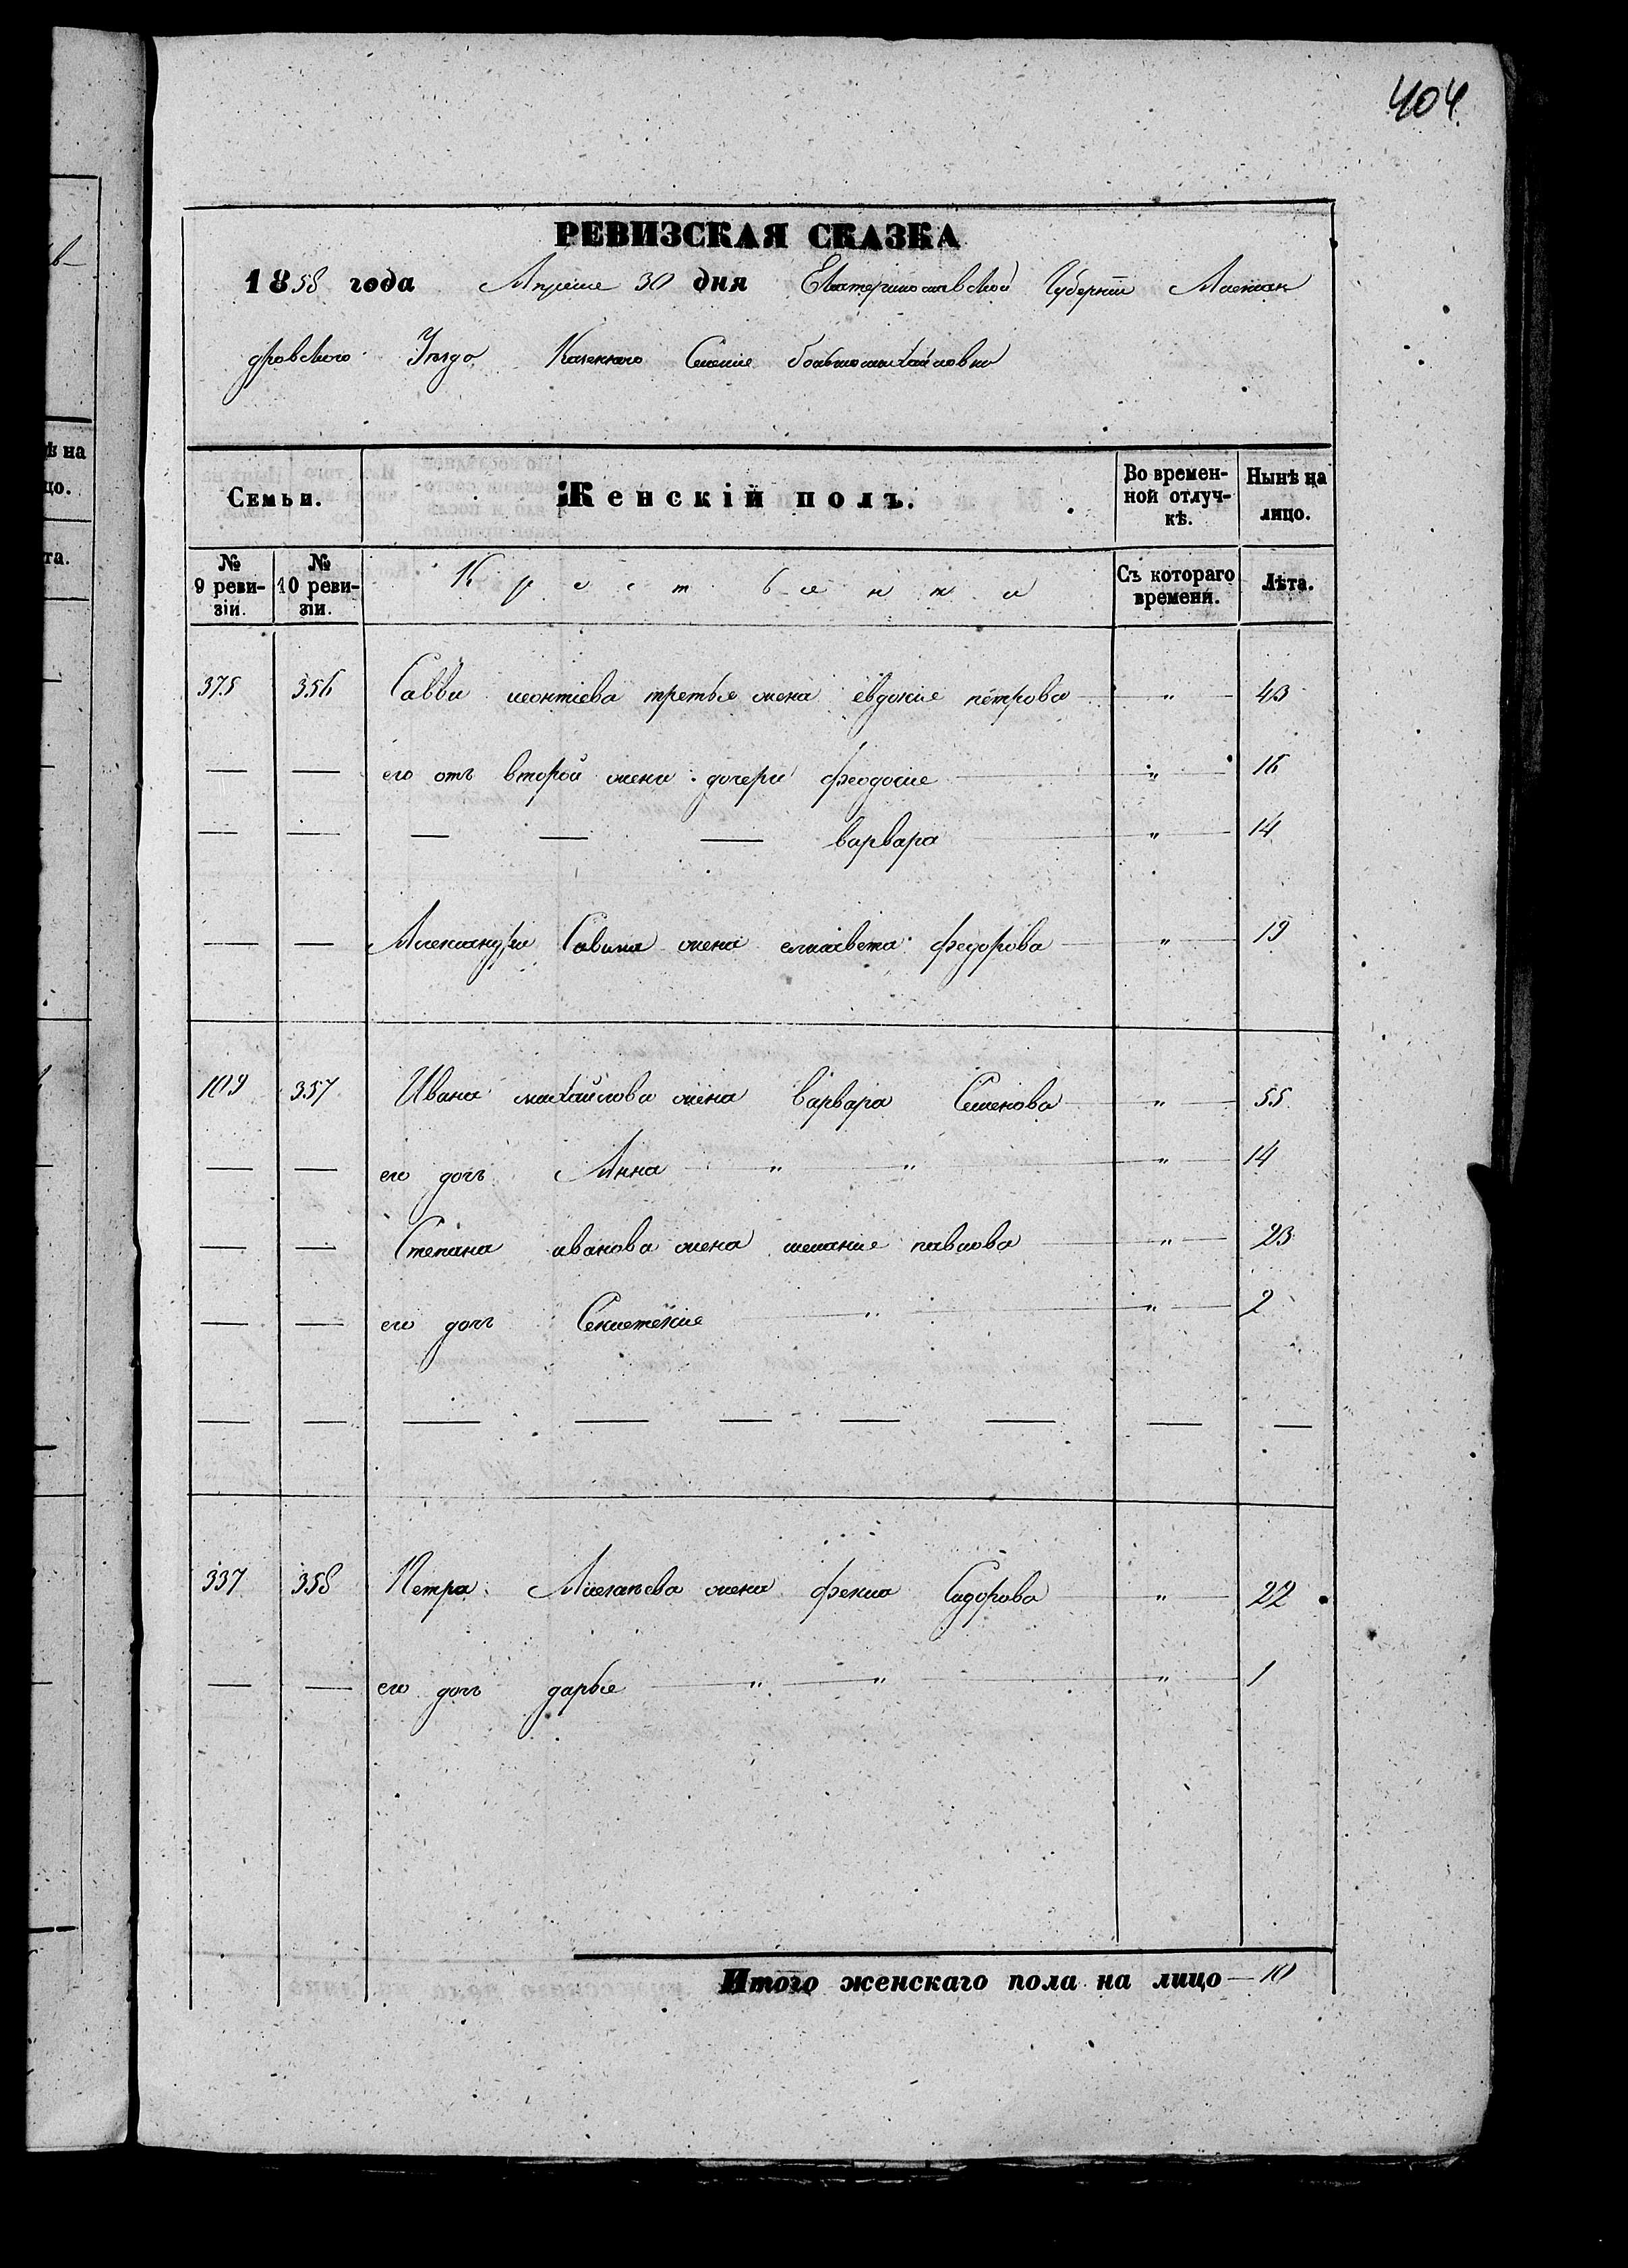 404
РЕВИЗСКАЯ СКАЗКА
1858 года Апреля 30 дня Екатеринославской Губернiи Алексан
дровского Уезда Казенного Селенiя большомихайловки
Семьи. Женскiй полъ. Во времен-ной отлуч-кѣ. Нынѣ на лицо.
№ 9 реви-зiи. № 10 реви-зiи. Крестьянки Съ котораго времени. Лѣта.
375 356 Саввы леонтiева третья жена евдокия петрова — " — 43
— — его отъ второй жены дочери феодосия — " — 16
— — — — — варвара — " — 14
— — Александра Савина жена елисавета федорова — " — 19
109 357 Ивана михайлова жена варвара Семенова — " — 55
— — его дочь Анна — " — " — " — 14
— — Степана иванова жена мелания павлова — " — 23
— — его дочь — " — " — 2
— — — — — — — — —
337 358 Петра жена фекла Сидорова — " — 22
— — его дочь дарья — " — " — " — 1
Итого женскаго пола на лицо — 10
ѣ на
цо.
та.